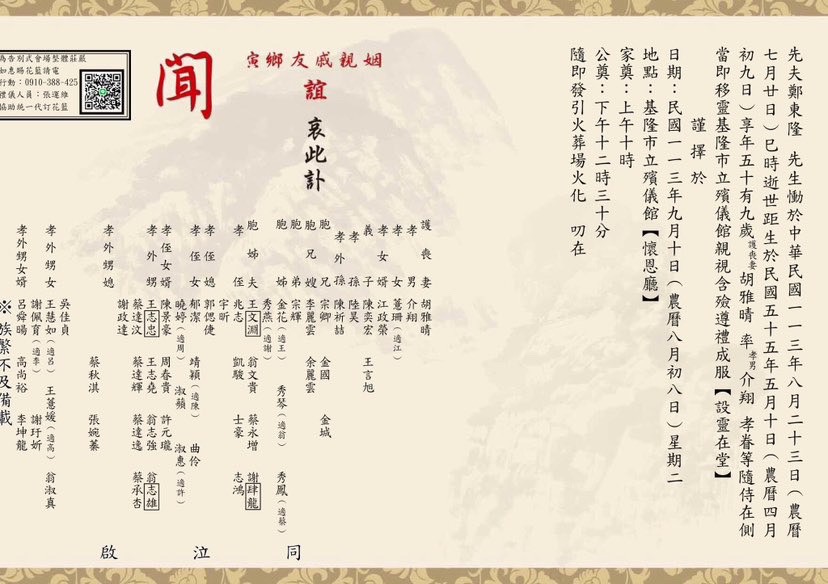 先夫鄭東隆 先生慟於中華民國一一三年八月二十三日（農曆
七月廿日）巳時逝世距生於民國五十五年五月十日（農曆四月
初九日）享年五十有九歲護喪妻胡雅晴 率孝男介翔 孝眷等隨侍在側
當即移靈基隆市立殯儀館親視含殮遵禮成服【設靈在堂】
謹擇於
日期：民國一一三年九月十日（農曆八月初八日）星期二
地點：基隆市立殯儀館【懷恩廳】
家奠：上午十時
公奠：下午十二時三十分
隨即發引火葬場火化 叨在
姻親戚友鄉寅
誼
哀此訃
聞
為告別式會場整體莊嚴
如惠賜花籃請電
行動：0910-388-425
禮儀人員：張運維
協助統一代訂花籃
護喪妻 胡雅晴
孝男 介翔
孝女 薏珊（適江）
孝女婿 江政榮
義子 陳奕宏 王言旭
孝孫 陸昊
孝外孫 陳祈喆
胞兄 宗卿 金國 金城
胞兄嫂 李麗雲 余麗雲
胞弟 宗輝
胞姊 金花（適王） 秀琴（適翁） 秀鳳（適蔡）
秀燕（適謝）
胞姊夫 王文淵 翁文貴 蔡永增 謝肆龍
孝侄 兆志 凱駿 士豪 志鴻
宇昕
孝侄媳 郭偲倢
孝侄女 郁潔 靖穎（適陳） 曲伶
曉婷（適周） 淑蘋 淑惠（適許）
孝侄女婿 陳景豪 周春貴 許元瓏
孝外甥 王志忠 王志堯 翁志強 翁志雄
蔡達汶 蔡達輝 蔡達逸 蔡承杏
謝政達
孝外甥媳 蔡秋淇 張婉蓁
吳佳貞
孝外甥女 王慧如（適呂） 王薏媛（適高） 翁淑真
謝佩育（適李） 謝玗妡
孝外甥女婿 呂舜暘 高尚裕 李坤龍
※族繁不及備載
同泣啟